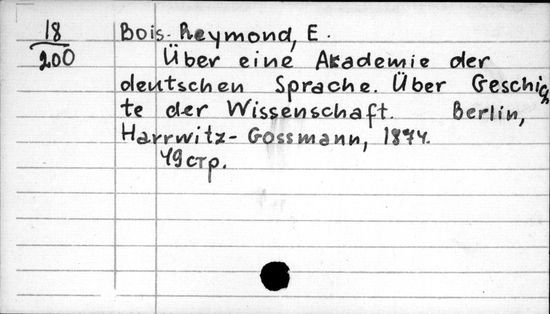 18
200
Bois-Reymond, E.
Über eine Akademie der
deutschen Sprache. Über Geschich
te der Wissenschaft. Berlin,
Harrwitz-Gossmann, 1874.
49 стр.